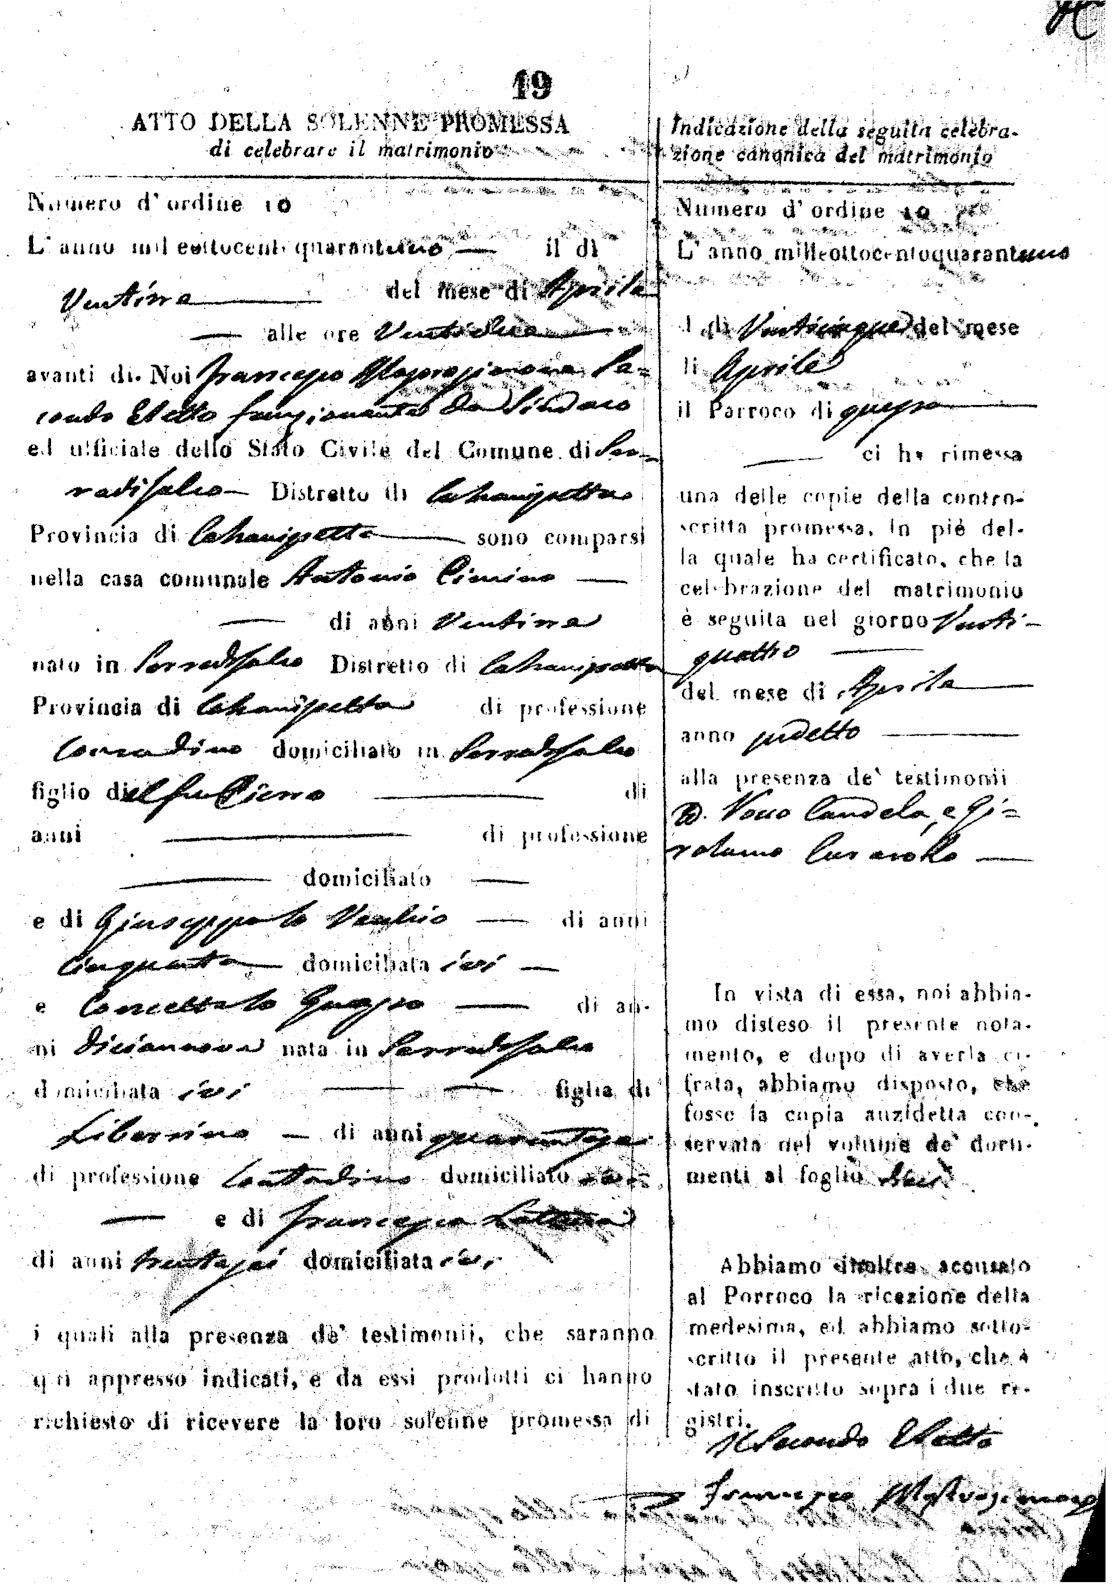 19
ATTO DELLA SOLENNE PROMESSA
di celebrare il matrimonio
Numero d' ordine 10
L' anno mil eottocent quarantuno — il dì
Ventitre — del mese di Aprile
— alle ore Ventidue —
avanti di Noi Francesco Se-
condo Eletto funzionante da Sindaco
ed ufficiale dello Stato Civile del Comune di Ser-
radifalco — Distretto di Caltanissetta
Provincia di Caltanissetta — sono comparsi
nella casa comunale Antonio Cimino —
— di anni Ventitre
nato in Serradifalco Distretto di Caltanissetta
Provincia di Caltanissetta di professione
Contadino domiciliato in Serradifalco
figlio di del fu — di
anni — di professione
— domiciliato —
e di Giuseppa lo Vecchio — di anni
Cinquanta — domiciliata ivi —
e Concetta lo — di an-
ni Diecianove nata in Serradifalco
domiciliata ivi — — figlia di
Libertino — di anni quarantasei
di professione Contadino domiciliato ivi
— e di Francesca
di anni trentasei domiciliata ivi
i quali alla presenza de' testimonii, che saranno
qui appresso indicati, e da essi prodotti ci hanno
richiesto di ricevere la loro solenne promessa di
Indicazione della seguita celebra-
zione canonica del matrimonio
Numero d' ordine 10
L' anno milleottocentoquarantuno
il dì Venticinque del mese
di Aprile
il Parroco di questo —
— ci ha rimessa
una delle copie della contro-
scritta promessa, in piè del-
la quale ha certificato, che la
celebrazione del matrimonio
è seguita nel giorno Venti-
quattro —
del mese di Aprile —
anno sudetto —
alla presenza de' testimonii
D. Candela, e Gi-
rolamo —
In vista di essa, noi abbia-
mo disteso il presente nota-
mento, e dopo di averla ci-
frata, abbiamo disposto, che
fosse la copia anzidetta con-
servata nel volume de' docu-
menti al foglio
Abbiamo inoltre accusato
al Porroco la ricezione della
medesima, ed abbiamo sotto-
scritto il presente atto, che è
stato inscritto sopra i due re-
gistri.
Il Secondo Eletto
Francesco